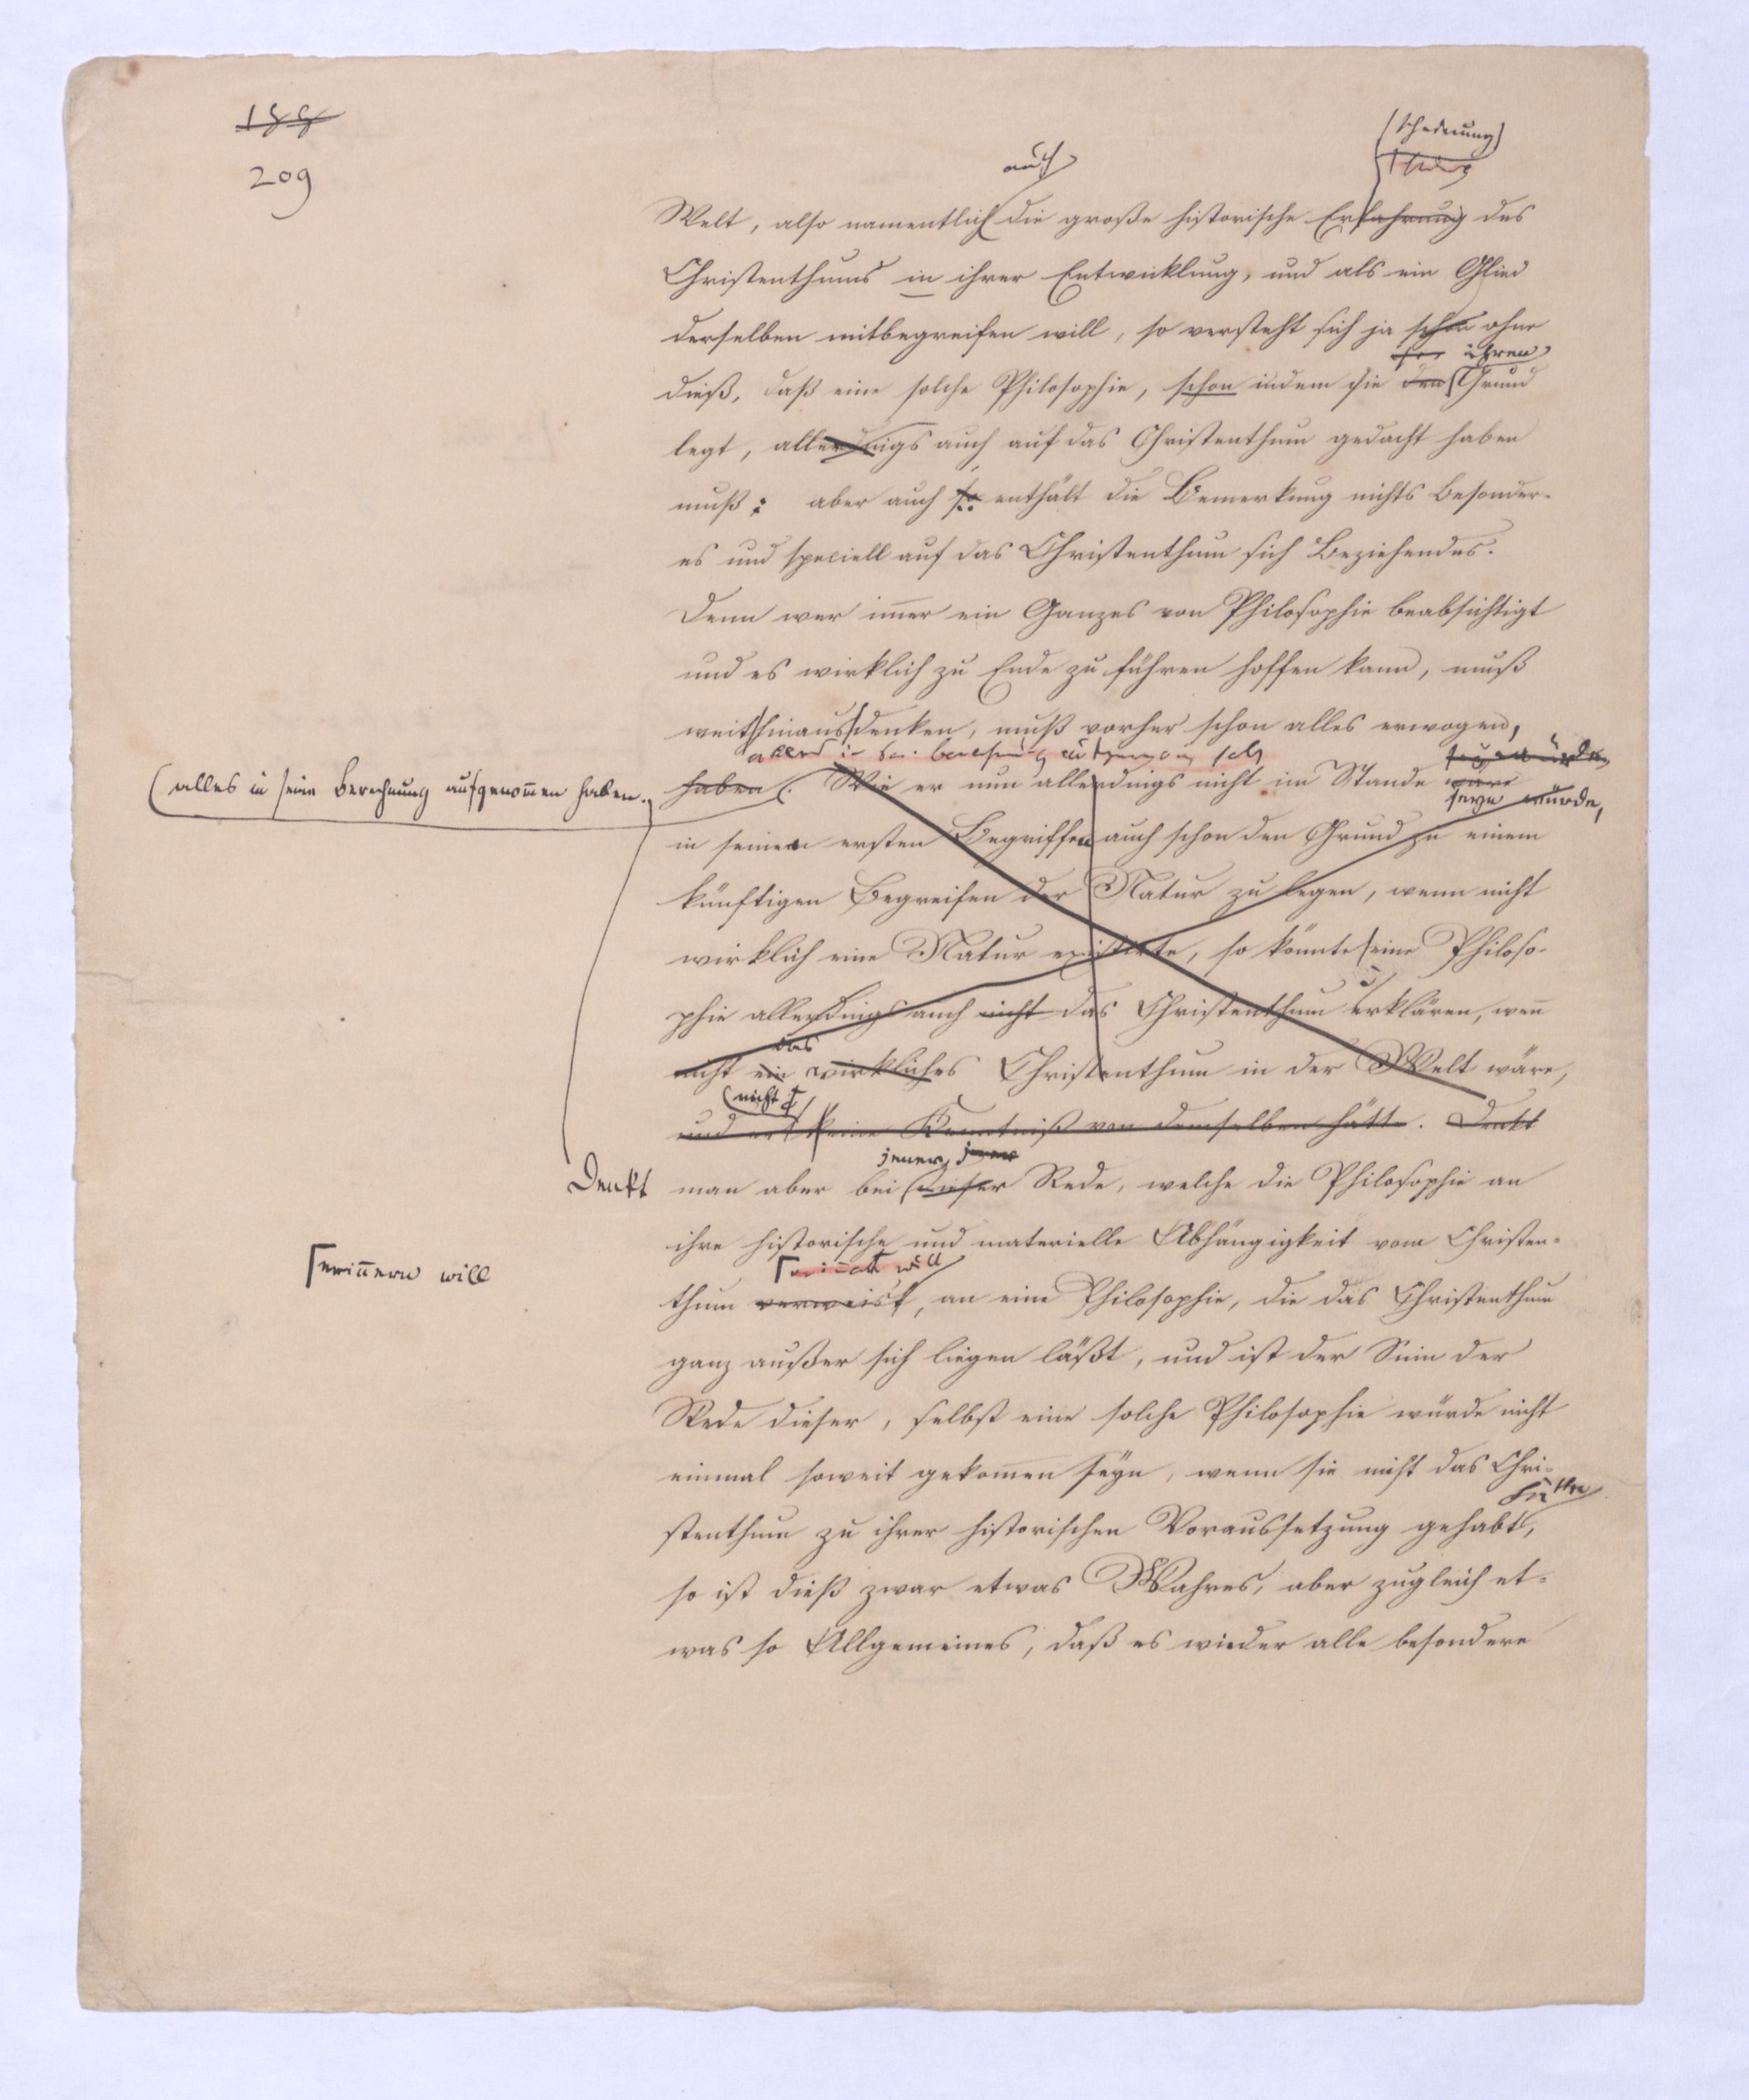 188
209
(scheinung)
auch
Welt, also namentlich die große historische Erfahrung des
Christenthums in ihrer Entwicklung, und als ein Glied
derselben mitbegreifen will, so versteht sich ja schon ohne
ihren
dieß, daß eine solche Philosophie, schon indem sie den Grund
legt, allerdings auch auf das Christenthum gedacht haben
muß; aber auch so enthält die Bemerkung nichts Besonder-
es und speciell auf das Christenthum sich Beziehendes.
Denn wer im̅er ein Ganzes von Philosophie beabsichtigt
und es wirklich zu Ende zu führen hoffen kann, muß
weit hinausdenken, muß vorher schon alles erwogen,
(alles in seine Berechnung aufgenom̅en haben.
haben. Wie er nun allerdings nicht im Stande wäre
seyn würde,
in seinen ersten Begriffen auch schon den Grund zu einem
künftigen Begreifen der Natur zu legen, wenn nicht
wirklich eine Natur existirte, so könnte seine Philoso-
phie allerdings auch nicht das Christenthum erklären, wen̅
das
nicht ein wirkliches Christenthum in der Welt wäre,
(nicht
und er keine Kenntniß von demselben hätte. Denkt
jener jener
Denkt man aber bei dieser Rede, welche die Philosophie an
ihre historische und materielle Abhängigkeit vom Christen-
erin̅ern will
thum verweist, an eine Philosophie, die das Christenthum
ganz außer sich liegen läßt, und ist der Sinn der
Rede dieser, selbst eine solche Philosophie würde nicht
einmal soweit gekom̅en seyn, wenn sie nicht das Chri-
hätte
stenthum zu ihrer historischen Voraussetzung gehabt,
so ist dieß zwar etwas Wahres, aber zugleich et-
was so Allgemeines, daß es wieder alle besondere